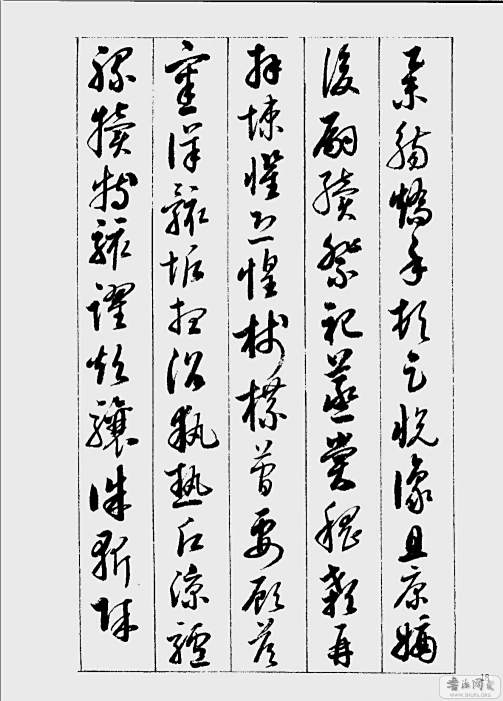 舉觴矯手頓足悅豫且康嫡
後嗣續祭祀蒸嘗稽顙再
拜悚懼恐惶牋牒簡要顧答
審詳骸垢想浴執熱願涼驢
騾犢特駭躍超驤誅斬賊
书法网